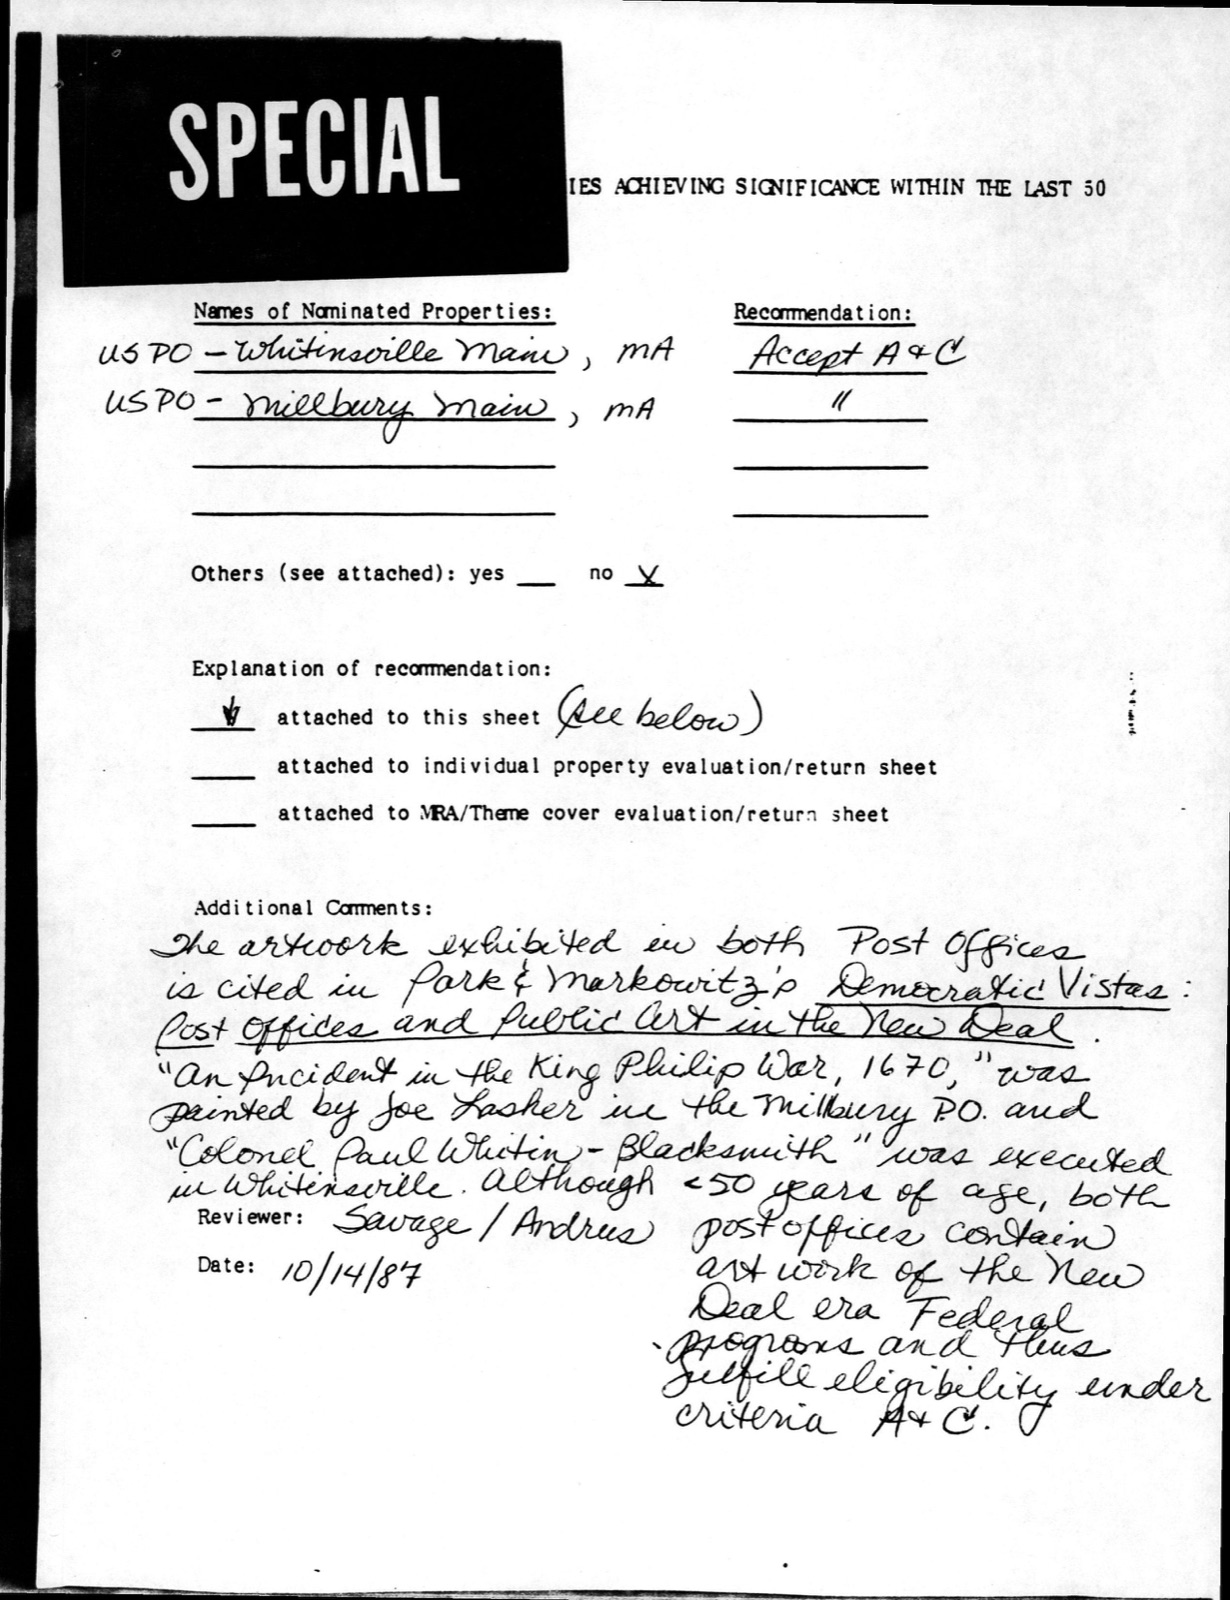 SPECIAL
IES ACHIEVING SIGNIFICANCE WITHIN THE LAST 50
Names of Nominated Properties: Recommendation:
USPO - Whitinsville Main, MA Accept A & C
USPO - Millbury Main, MA "
Others (see attached): yes ___ no X
Explanation of recommendation:
attached to this sheet (see below)
____ attached to individual property evaluation/return sheet
____ attached to MRA/Theme cover evaluation/return sheet
Additional Comments:
The artwork exhibited in both Post Offices
is cited in Park & Markowitz's Democratic Vistas:
Post Offices and Public Art in the New Deal.
"An Incident in the King Philip War, 1670," was
painted by Joe Lasker in the Millbury P.O. and
"Colonel Paul Whitin - Blacksmith" was executed
in Whitinsville. Although <50 years of age, both
Reviewer: Savage / Andrus post offices contain
Date: 10/14/87 art work of the New
Deal era Federal
programs and thus
fulfill eligibility under
criteria A & C.